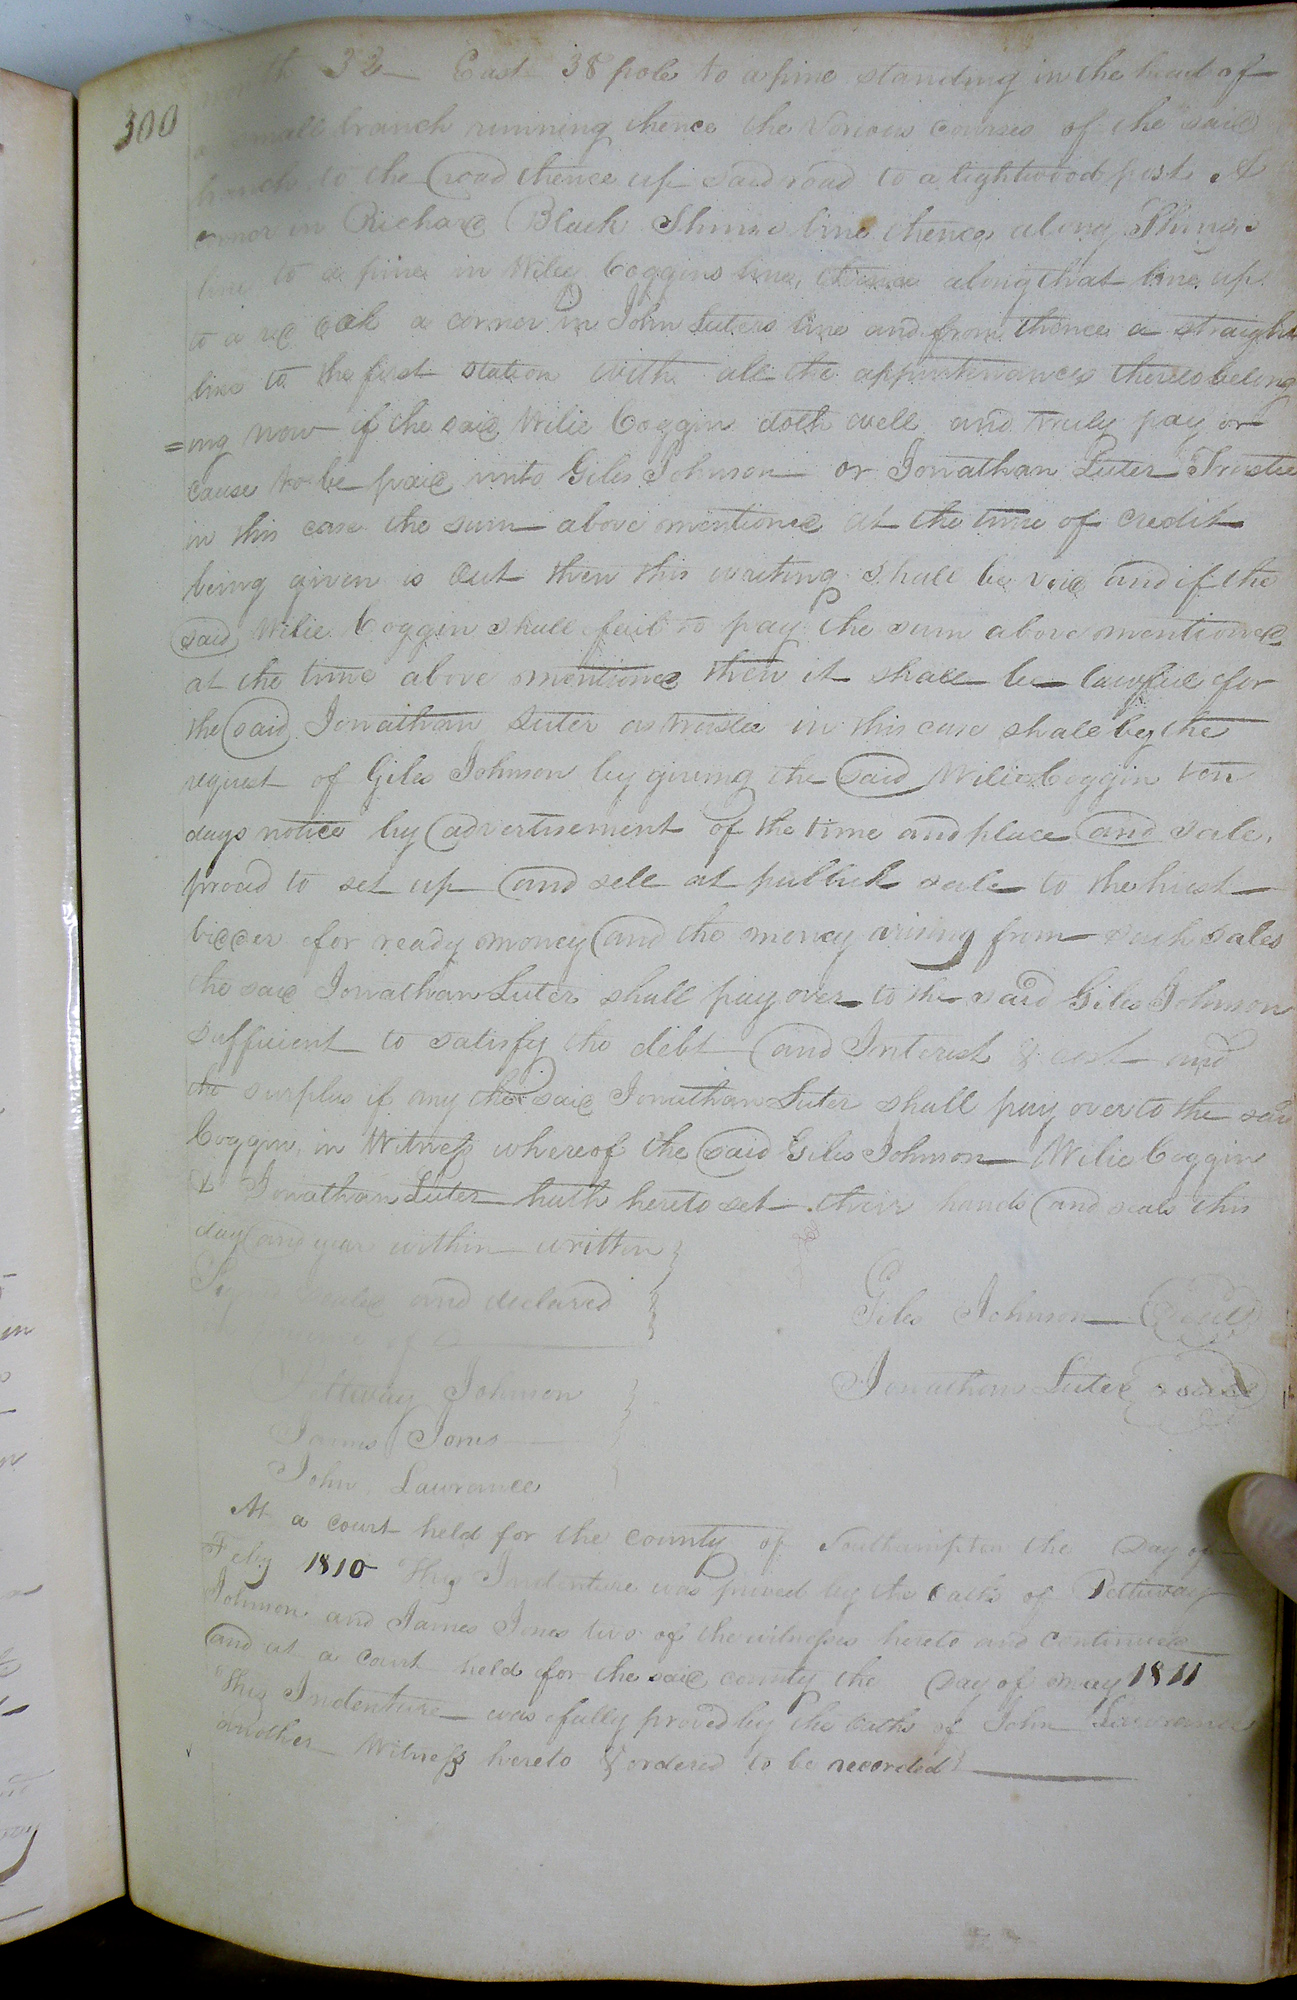 300
north 32 East 38 pole to a pine standing in the head of
a small branch running thence the Various courses of the said
branch to the road thence up said road to a lightwood post A
cornor in Richard Black line thence along
line to a pine in Wiley Coggins line, thence along that line up
to a red oak a corner in John Luters line and from thence a straight
line to the first station with all the appurtenances thereto belong
=ing now if the said Wilie Coggin doth well and truly pay or
cause to be paid unto Giles Johnson or Jonathan Luter Trustee
in this case the sum above mentioned at the time of credit
being given is out then this writing shall be void and if the
said Wilie Coggin shall fail to pay the sum above mentioned
at the time above mentioned then it shall be lawful for
the said Jonathan Luter as trustee in this case shall by the
request of Giles Johnson by giving the said Wilie Coggin ten
days notice by advertisement of the time and place and sale.
proced to set up and sell at publick sale to the hiest
bidder for ready money and the money arising from such sales
the said Jonathan Luter shall pay over to the said Giles Johnson
sufficient to satisfy the debt and Interest & cost and
the surplus if any the said Jonathan Luter shall pay over to the said
Coggin, in Witness whereof the said Giles Johnson Wilie Coggin
& Jonathan Luter hath hereto set their hands and seals this
day and year within written
Signed sealed and declared
of
Giles Johnson Seal
Pettway Johnson
Jonathan Luter seal
James Jones
John Lawrance
At a court held for the county of Southampton the Day of
Feby 1810 This Indenture was proved by the oaths of Pettway
Johnson and James Jones two of the witnesses hereto and continued
and at a court held for the said county the Day of may 1811
This Indenture was fully proved by the oaths of John Lawrance
another Witness hereto & ordered to be recorded